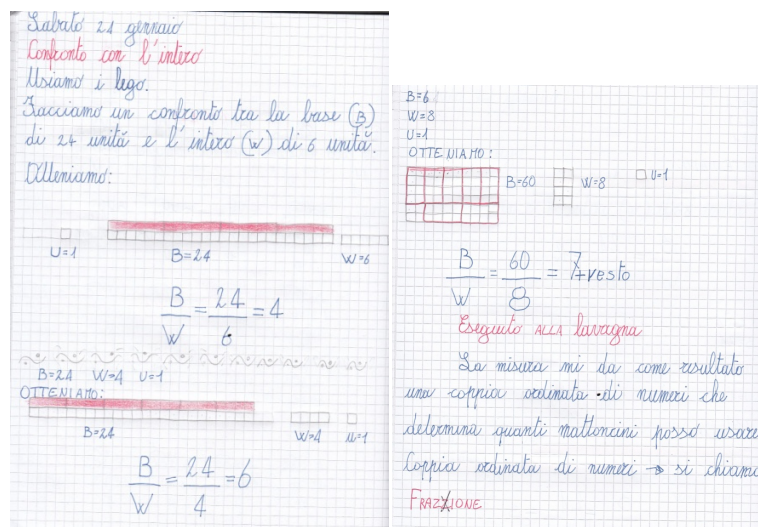 Sabato 21 gennaio
Confronto con l'intero
Usiamo i lego.
Facciamo un confronto tra la base (B)
di 24 unità e l'intero (W) di 6 unità.
Otteniamo:
U=1 B=24 W=6
B/W = 24/6 = 4
B=24 W=4 U=1
OTTENIAMO:
B=24 W=4 U=1
B/W = 24/4 = 6
B=6
W=8
U=1
OTTENIAMO:
B=60 W=8 U=1
B/W = 60/8 = 7+resto
Eseguito ALLA lavagna
La misura mi da come risultato
una coppia ordinata di numeri che
determina quanti mattoncini posso usare
Coppia ordinata di numeri → si chiama
FRAZIONE